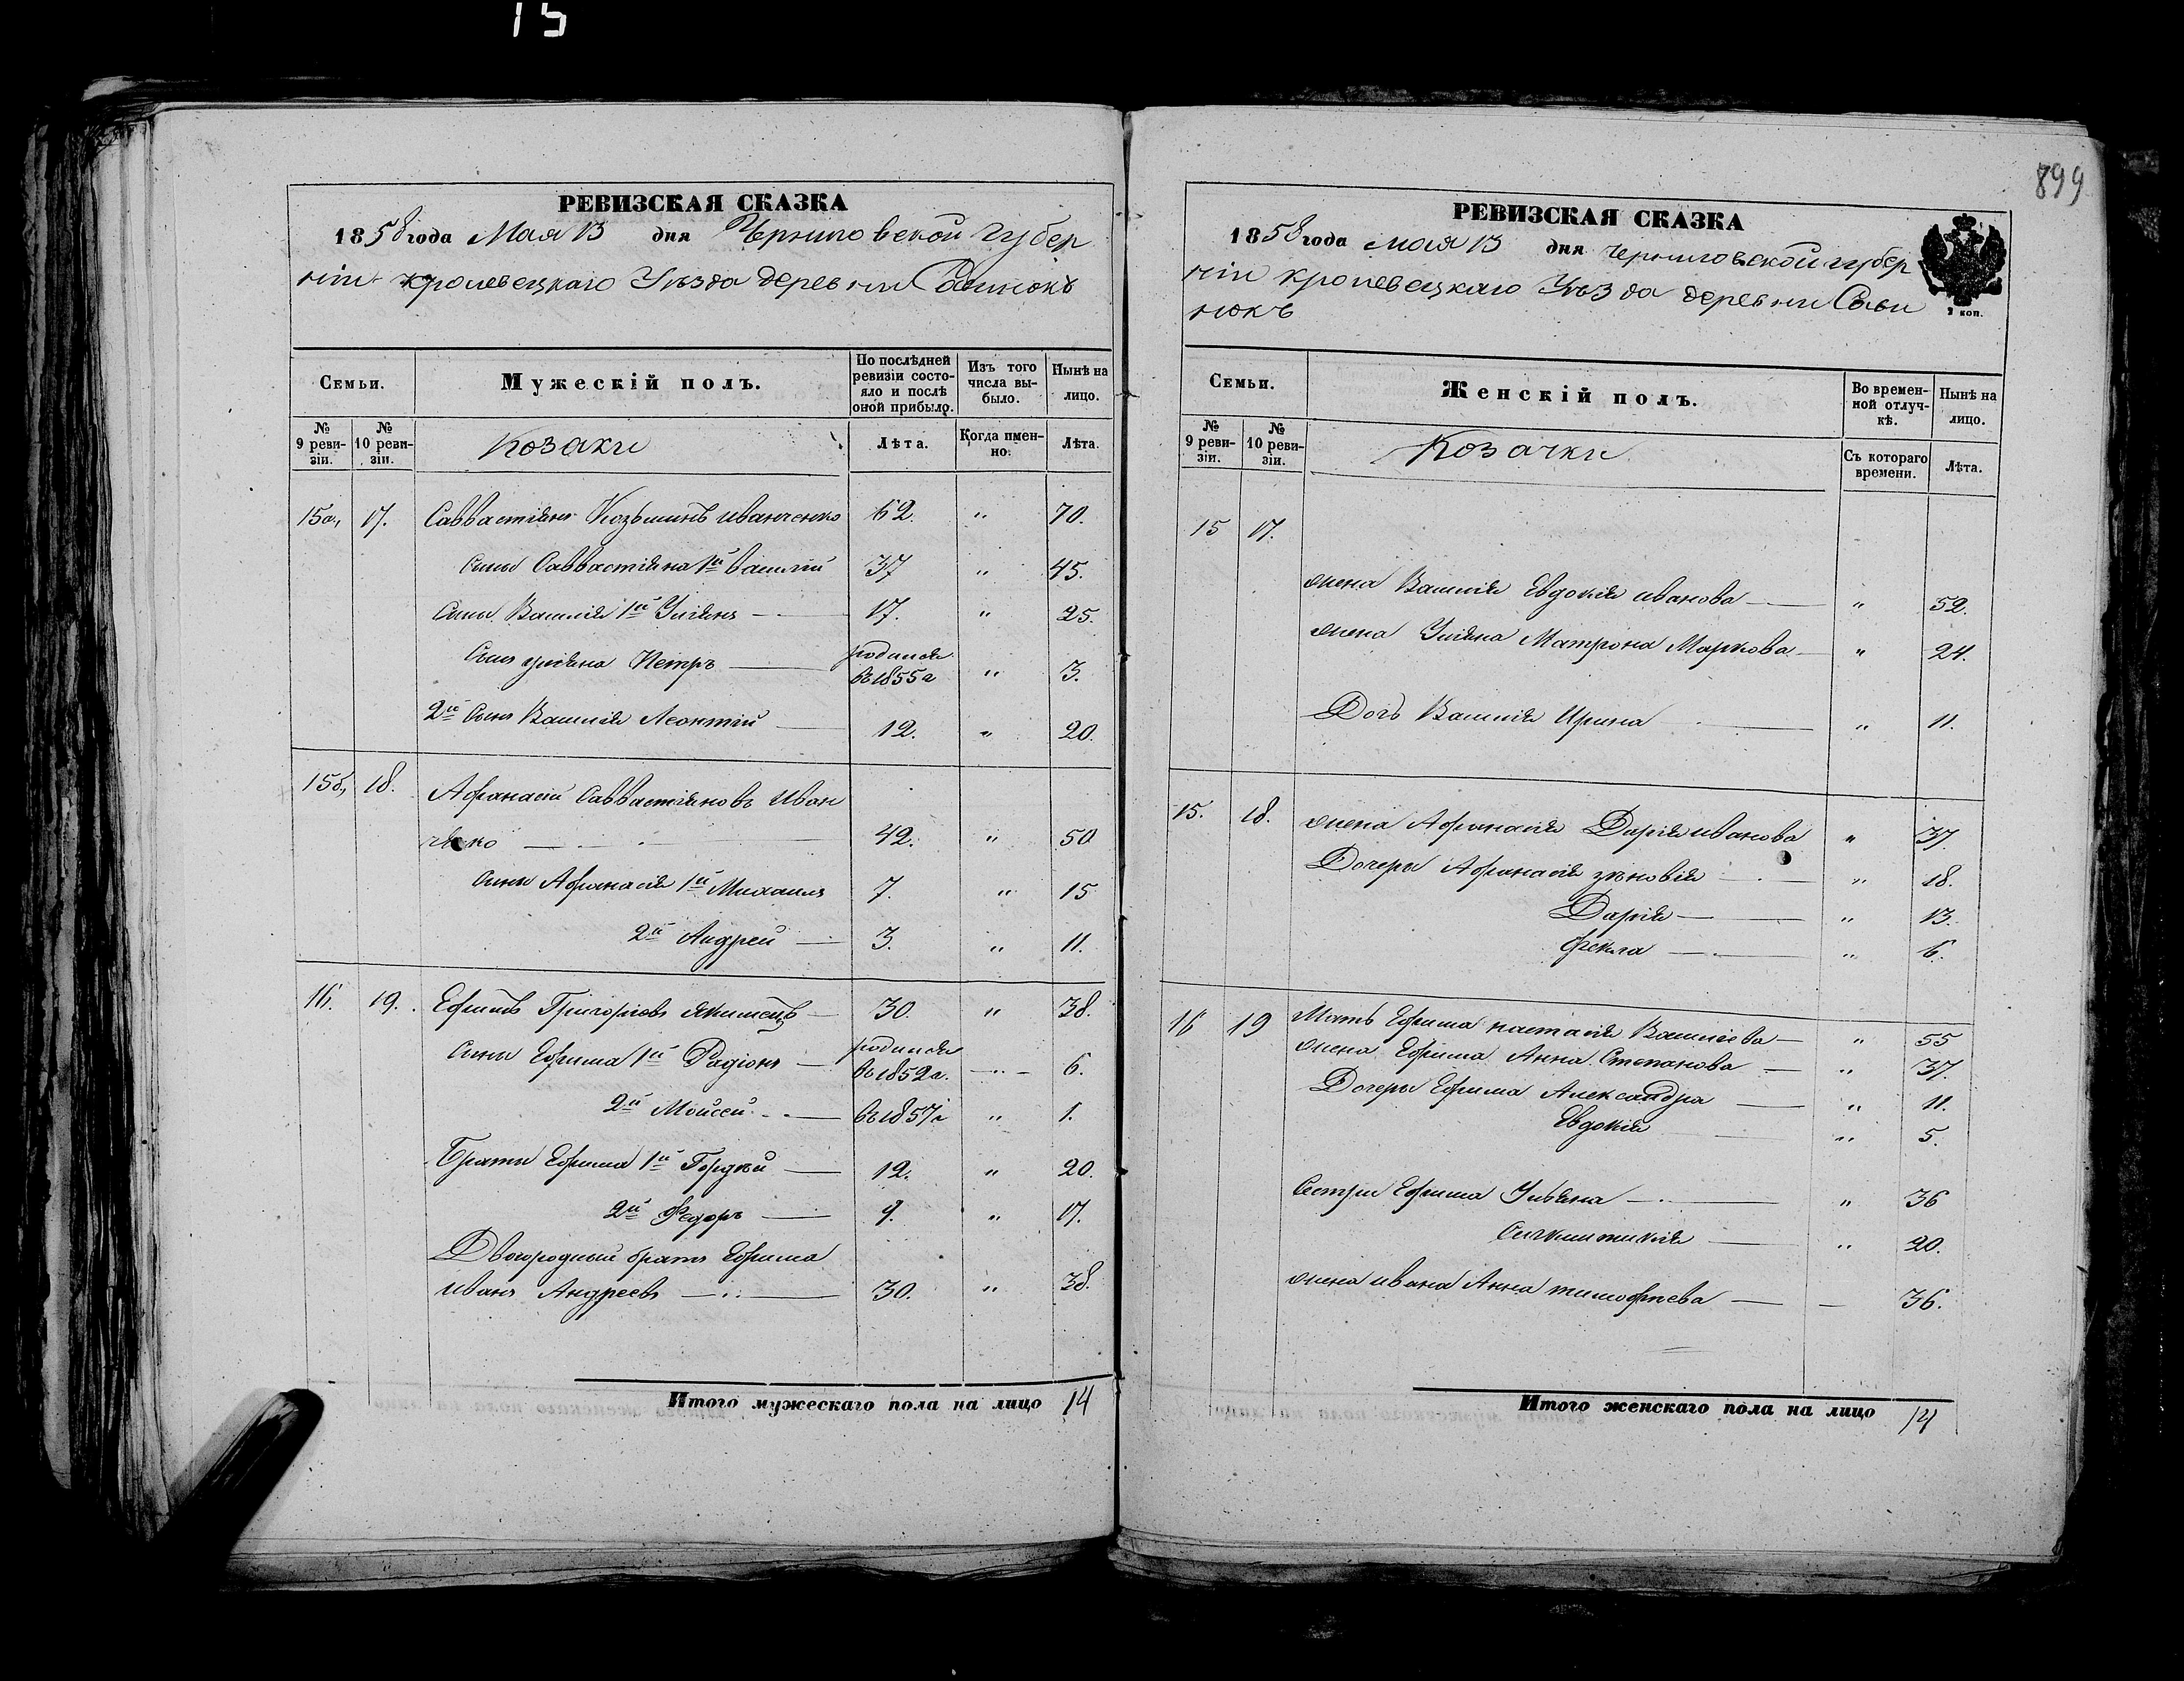 15
РЕВИЗСКАЯ СКАЗКА
1858 года Мая 13 дня Черниговской Губер
ніи кролевецкаго Уѣзда деревни
Семьи.
Мужескій полъ.
По послѣдней ревизіи состояло и послѣ оной прибыло.
Изъ того числа выбыло.
Нынѣ на лицо.
№ 9 ревизіи.
№ 10 ревизіи.
Козаки
Лѣта.
Когда именно.
Лѣта.
15а, 17. Саввастіянъ Козьминъ иванченко 62. " 70.
Сыны Саввастіяна 1й василій 37 " 45.
Сыны Василія 1й Уліянъ — 17. " 25.
Сынъ уліяна Петръ — родился въ 1855 г " 3.
2й Сынъ Василія Леонтій — 12. " 20.
15б, 18. Афанасій Саввастіяновъ Иван
ченко — 42. " 50
Сыны Афанасія 1й Михаилъ 7. " 15
2й Андрей — 3. " 11.
16. 19. Ефимъ Григоріовъ Якимецъ — 30. " 38.
Сыны Ефима 1й Радіонъ — родился въ 1852 г. — " — 6.
2й Мойсей — въ 1857 г " 1.
Браты Ефима 1й Гордѣй — 12. " 20.
2й Федоръ — 9. " 17.
Двоюродный братъ Ефима
иванъ Андреевъ — 30. " 38.
Итого мужескаго пола на лицо 14
899
РЕВИЗСКАЯ СКАЗКА
1858 года мая 13 дня черниговской губер
ніи кролевецкаго Уѣзда деревни
нюкъ
2 коп.
Семьи.
Женскій полъ.
Во временной отлучкѣ.
Нынѣ на лицо.
№ 9 ревизіи.
№ 10 ревизіи.
Козачки
Съ котораго времени.
Лѣта.
15 17.
жена Василія Евдокія иванова — " 52.
жена Уліяна Матрона Маркова — " 24.
Дочь Василія Ирина — " 11.
15. 18. жена Афанасія Дарія иванова " 37.
Дочеры Афанасія зѣновія — " 18.
Дарія — " 13.
фекла — " 6.
16 19 Мать Ефима настасія Василіева — " 55
жена Ефима Анна Степанова — " 37.
Дочеры Ефима Александра — " 11.
Евдокія — " 5.
Сестры Ефима Ульяна — " 36
— " 20.
жена ивана Анна тимофѣева — — 36.
Итого женскаго пола на лицо 14